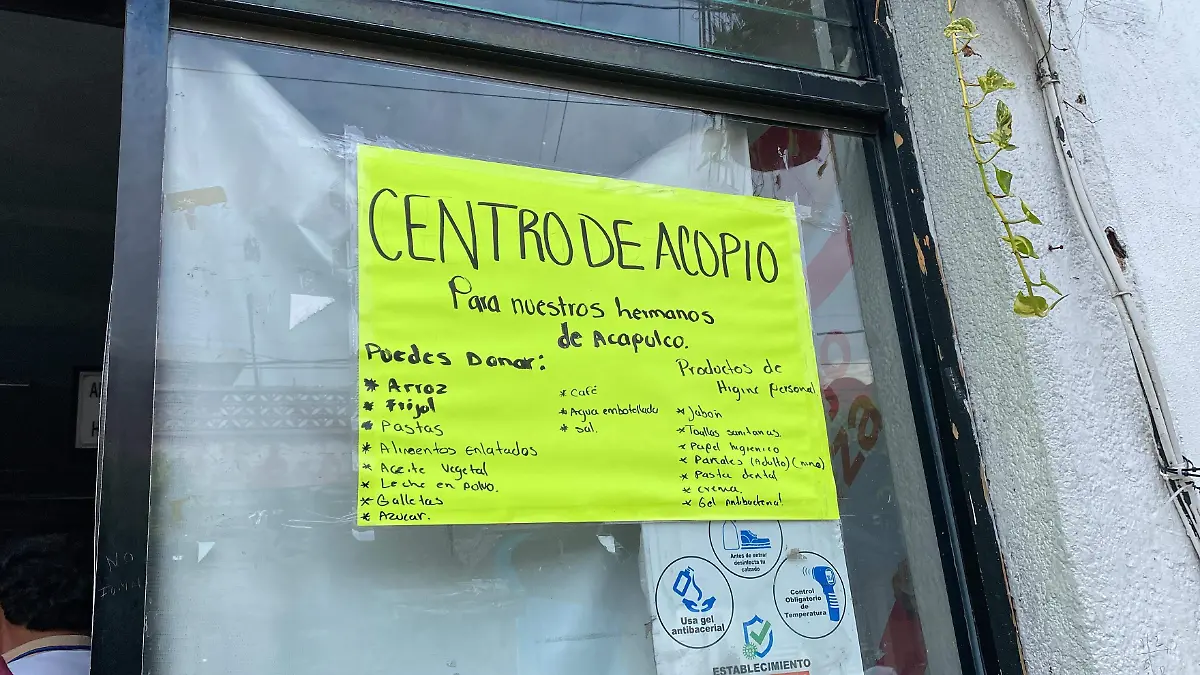 CENTRO DE ACOPIO
Para nuestros hermanos
de Acapulco.
Puedes Donar:
* Arroz
* Frijol
* Pastas
* Alimentos Enlatados
* Aceite Vegetal
* Leche en Polvo.
* Galletas
* Azucar.
* Café
* Agua embotellada
* sal.
Productos de
Higine Personal
* Jabon
* Toallas sanitarias.
* Papel higienico
* Pañales (Adulto) (niño)
* Pasta dental
* crema.
* Gel Antibacterial
Antes de entrar
desinfecta tu
calzado
Usa gel
antibacterial
Control
Obligatorio
de
Temperatura
ESTABLECIMIENTO